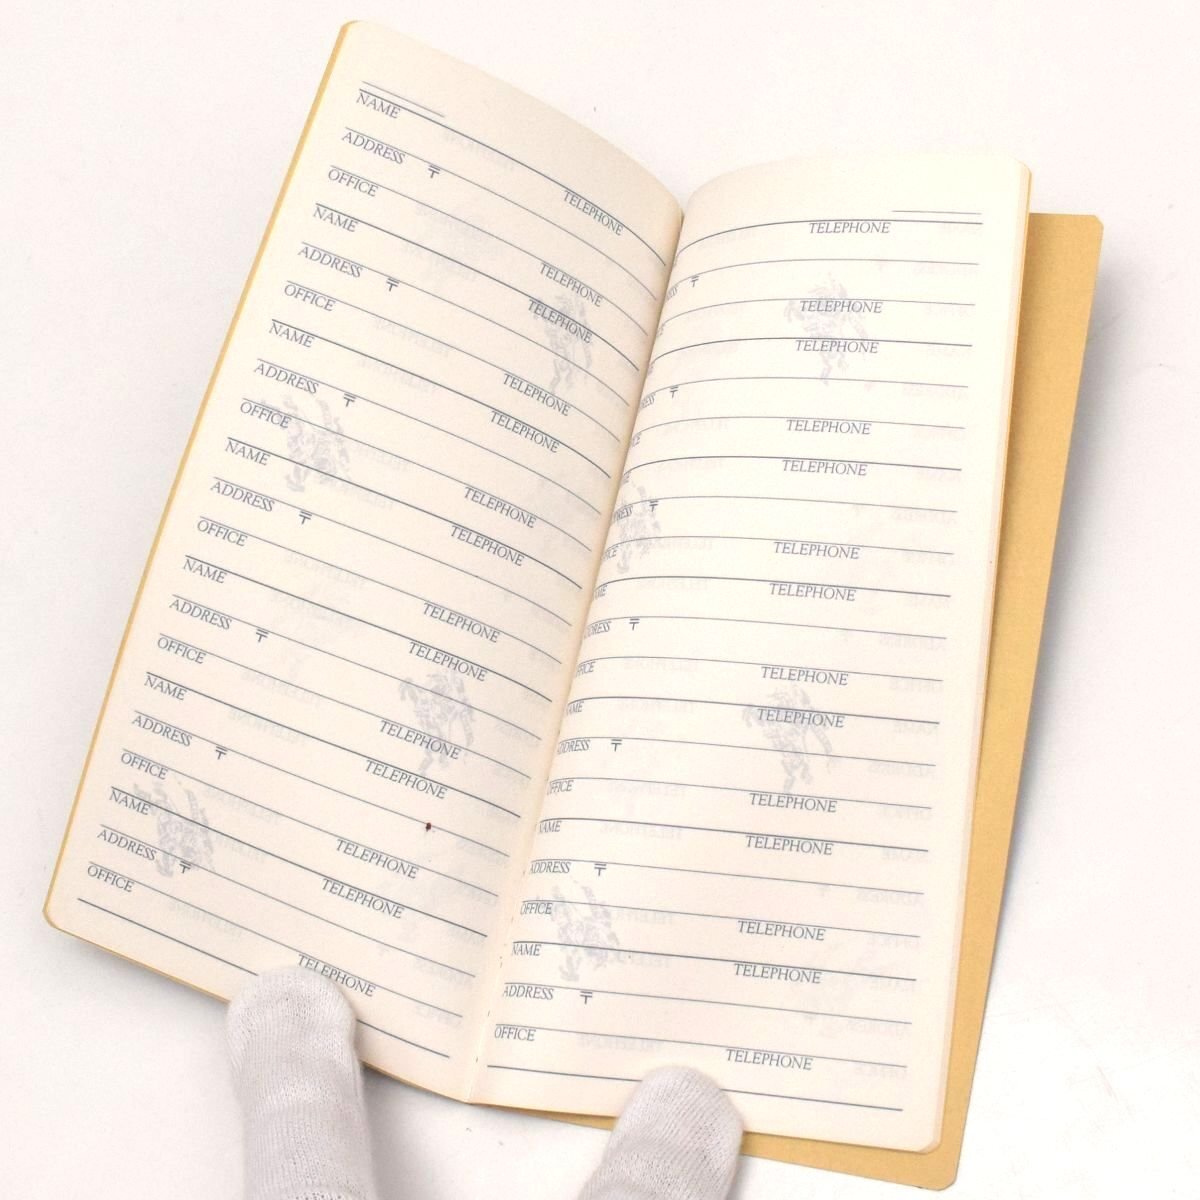 NAME TELEPHONE
ADDRESS 〒
OFFICE TELEPHONE
NAME TELEPHONE
ADDRESS 〒
OFFICE TELEPHONE
NAME TELEPHONE
ADDRESS 〒
OFFICE TELEPHONE
NAME TELEPHONE
ADDRESS 〒
OFFICE TELEPHONE
NAME TELEPHONE
ADDRESS 〒
OFFICE TELEPHONE
NAME TELEPHONE
ADDRESS 〒
OFFICE TELEPHONE
NAME TELEPHONE
ADDRESS 〒
OFFICE TELEPHONE
TELEPHONE
〒
TELEPHONE
TELEPHONE
〒
TELEPHONE
TELEPHONE
〒
TELEPHONE
TELEPHONE
ADDRESS 〒
OFFICE TELEPHONE
NAME TELEPHONE
ADDRESS 〒
OFFICE TELEPHONE
NAME TELEPHONE
ADDRESS 〒
OFFICE TELEPHONE
NAME TELEPHONE
ADDRESS 〒
OFFICE TELEPHONE